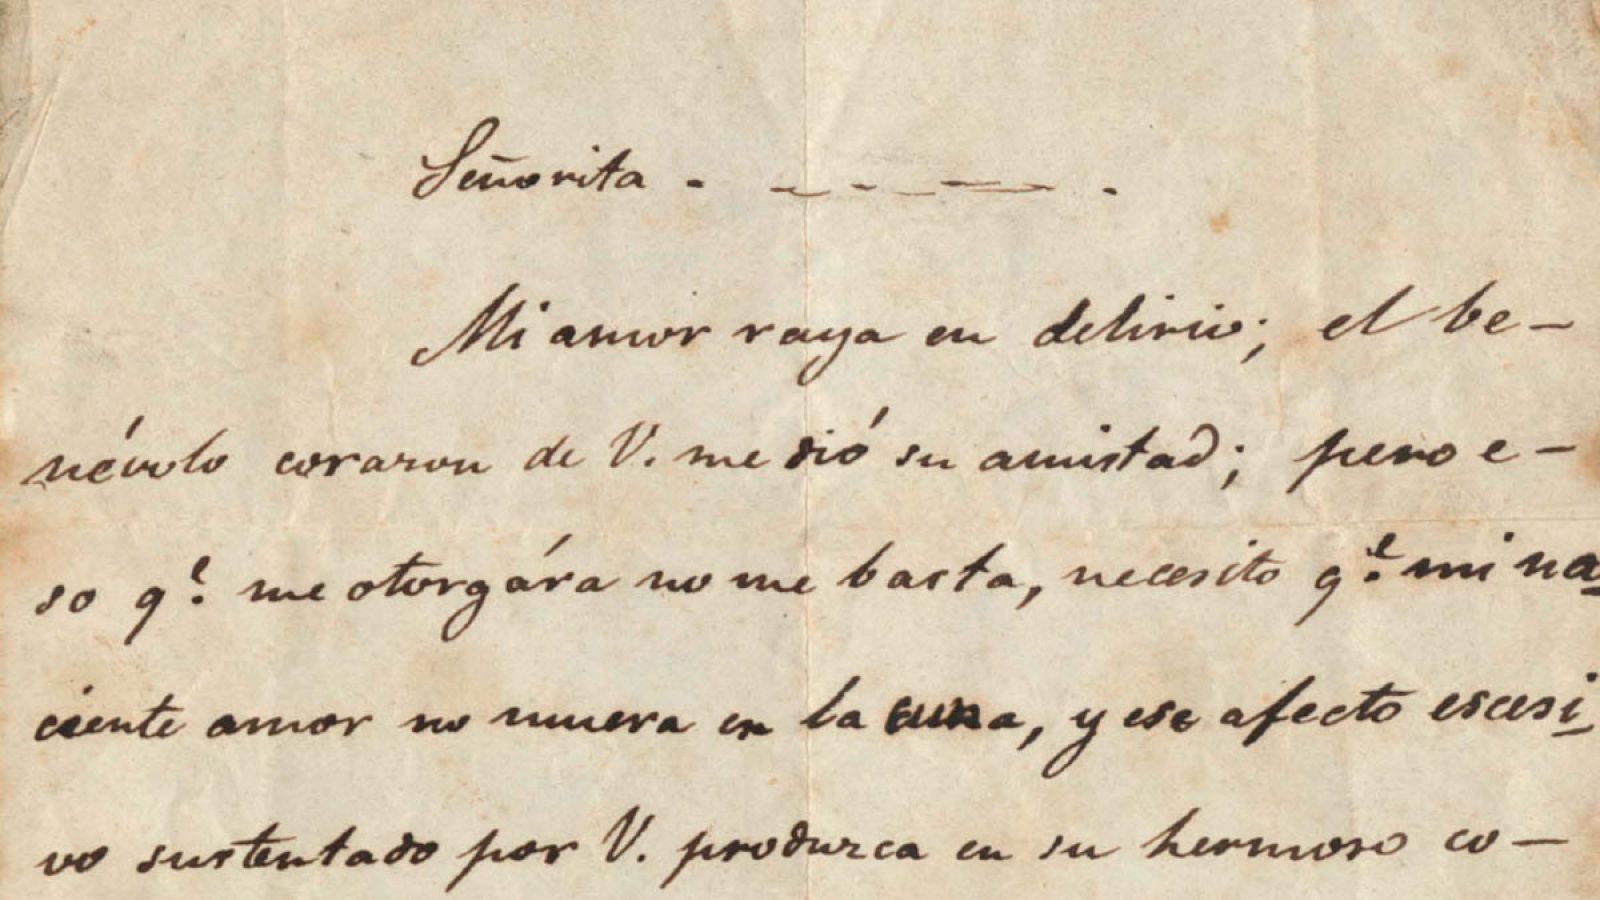 Señorita - - - - - .
Mi amor raya en delirio; el be-
névolo corazon de V. me dió su amistad; pero e-
so q.e me otorgára no me basta, necesito q.e mi na-
ciente amor no muera en la cuna, y ese afecto escesi-
vo sustentado por V. produzca en su hermoso co-